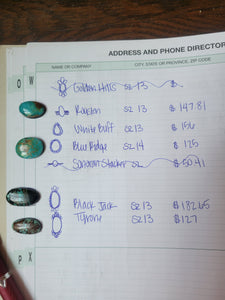 ADDRESS AND PHONE DIRECTOR
NAME OR COMPANY CITY, STATE OR PROVINCE, ZIP CODE
O W
Golden Hills sz 13 $
Royston sz 13 $147.81
White Buff sz 13 $156
Blue Ridge sz 14 $125
Sonoran Stacker sz $50.41
Black Jack sz 13 $182.65
Tyrone sz 13 $127
P X